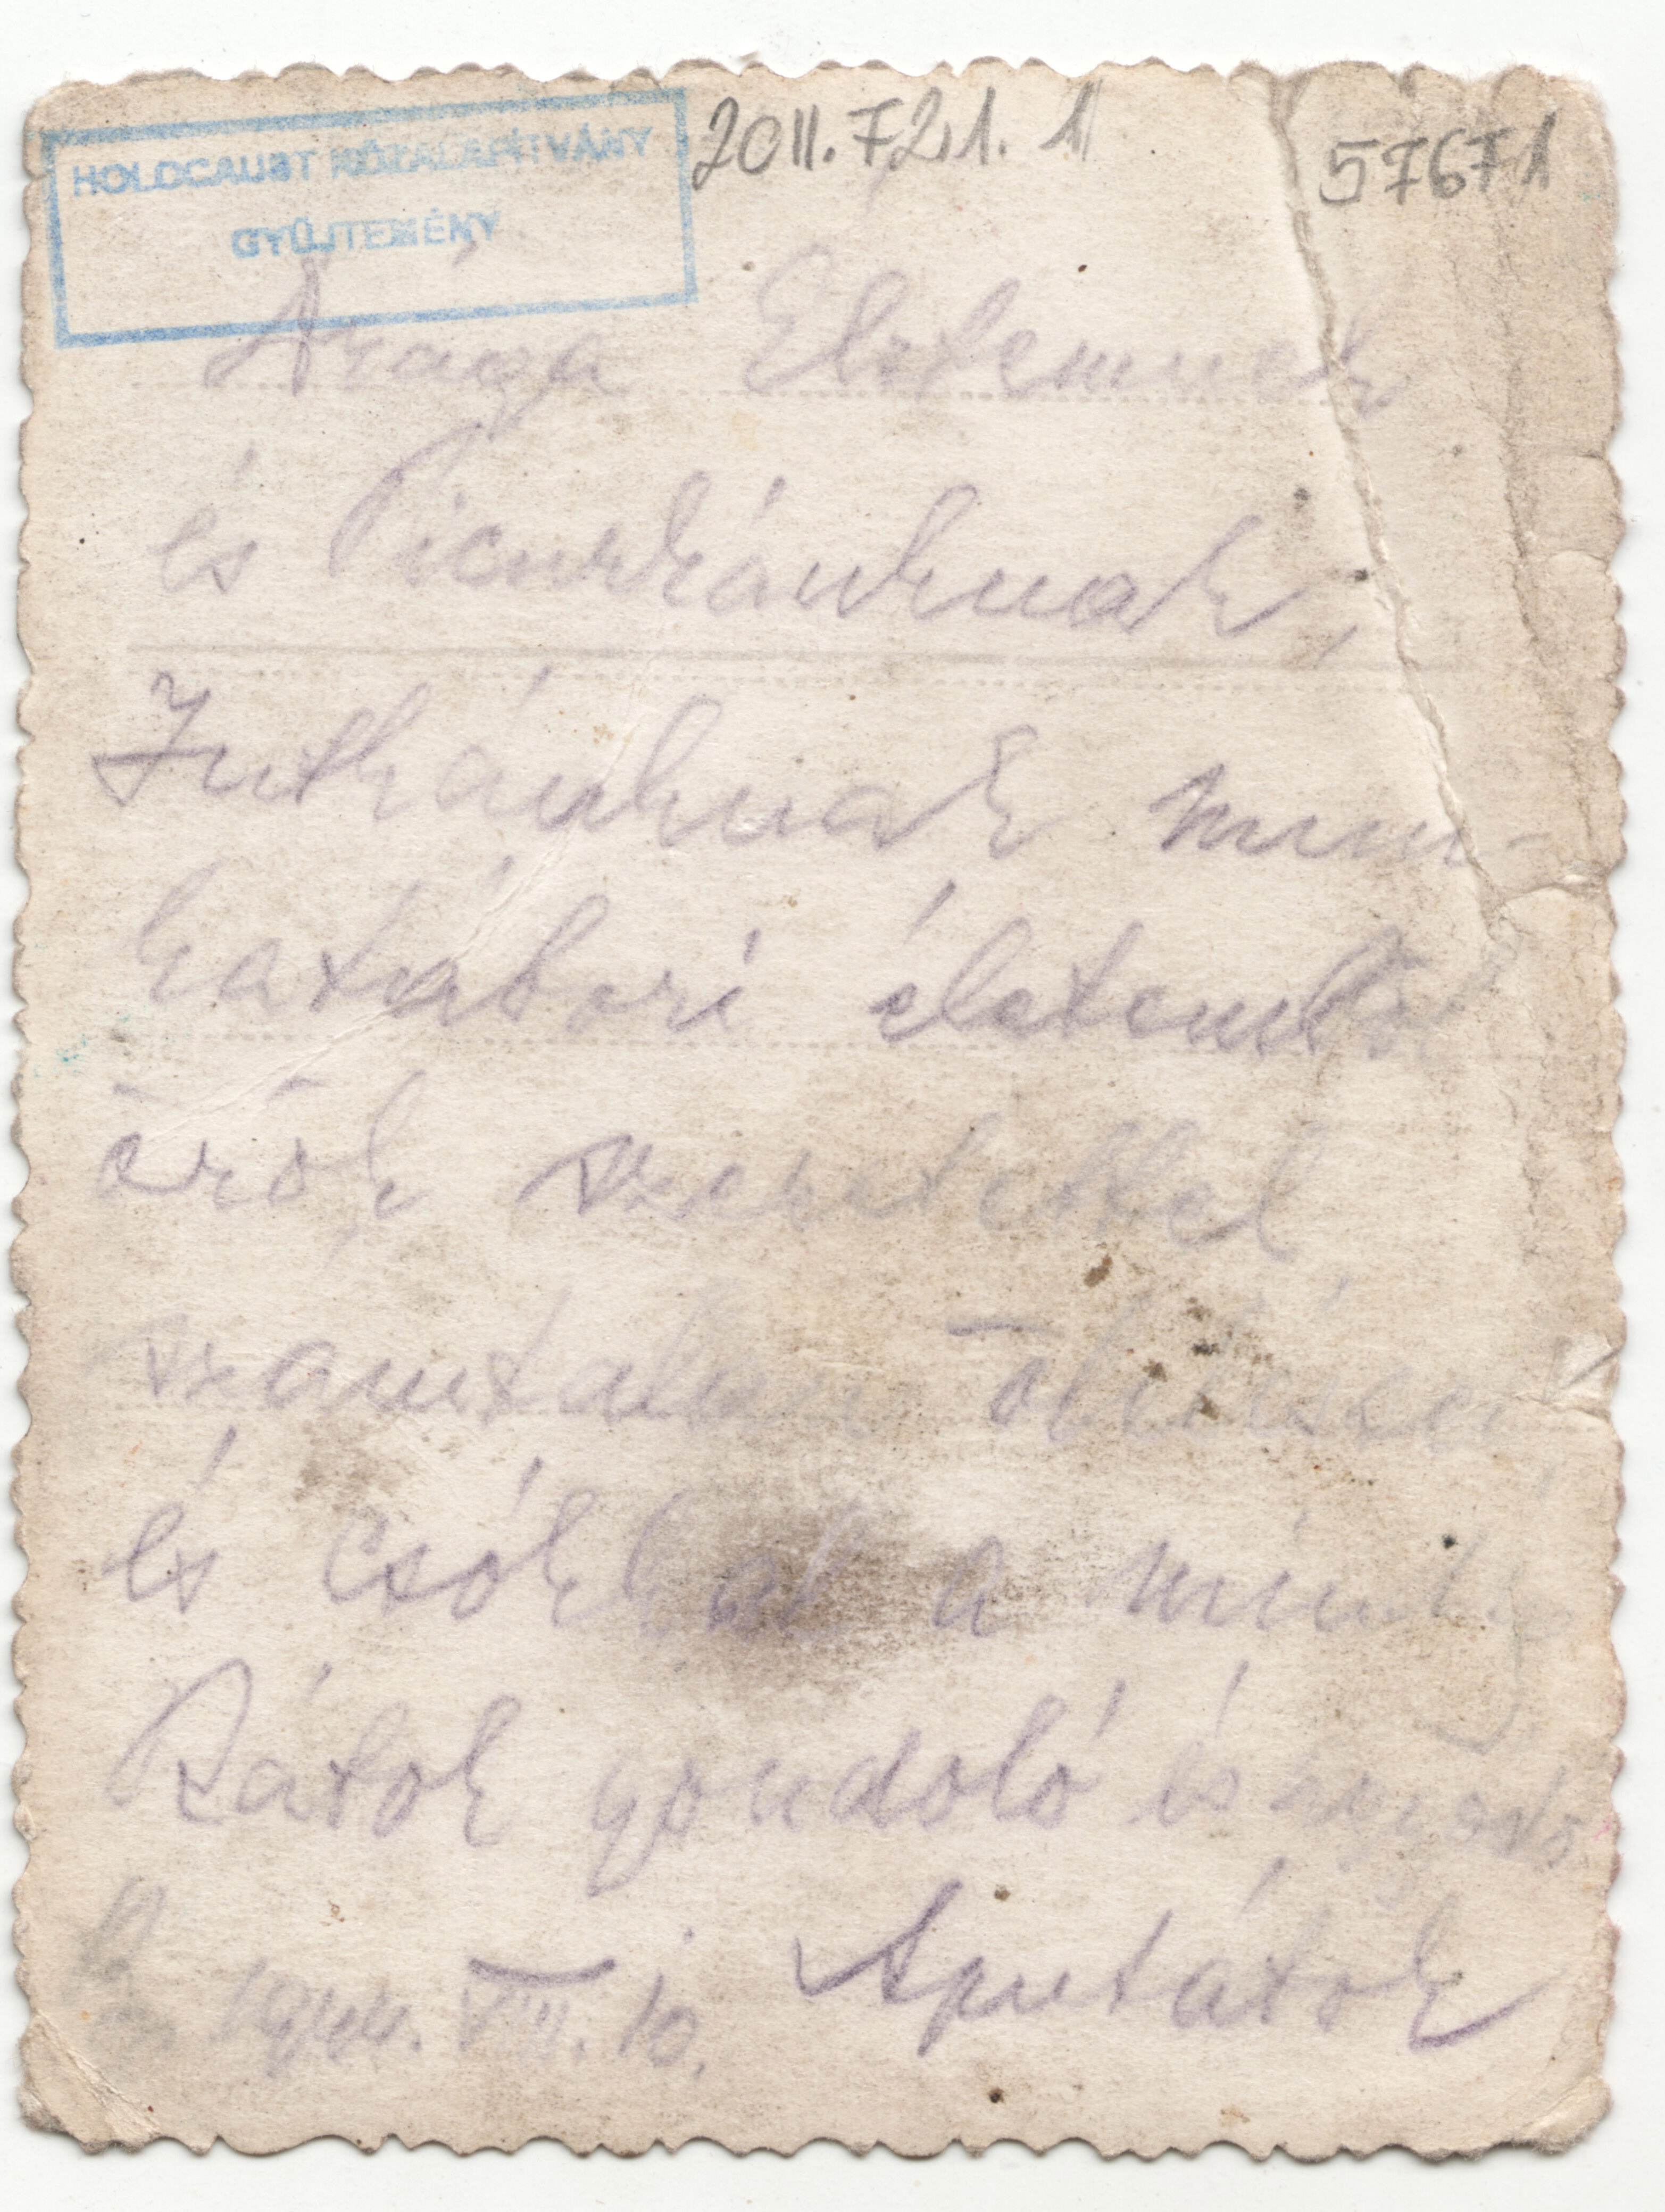 HOLOCAUST KÖZALAPÍTVÁNY
GYŰJTEMÉNY
2011.721.1
57671
Drága
és Picurkánknak,
Jutkánknak mun-
katábori életemből
örök szeretettel
számtalan ölelésem
és csókkal a mindig
Rátok gondoló és
1944. VIII. 10. Aputátok